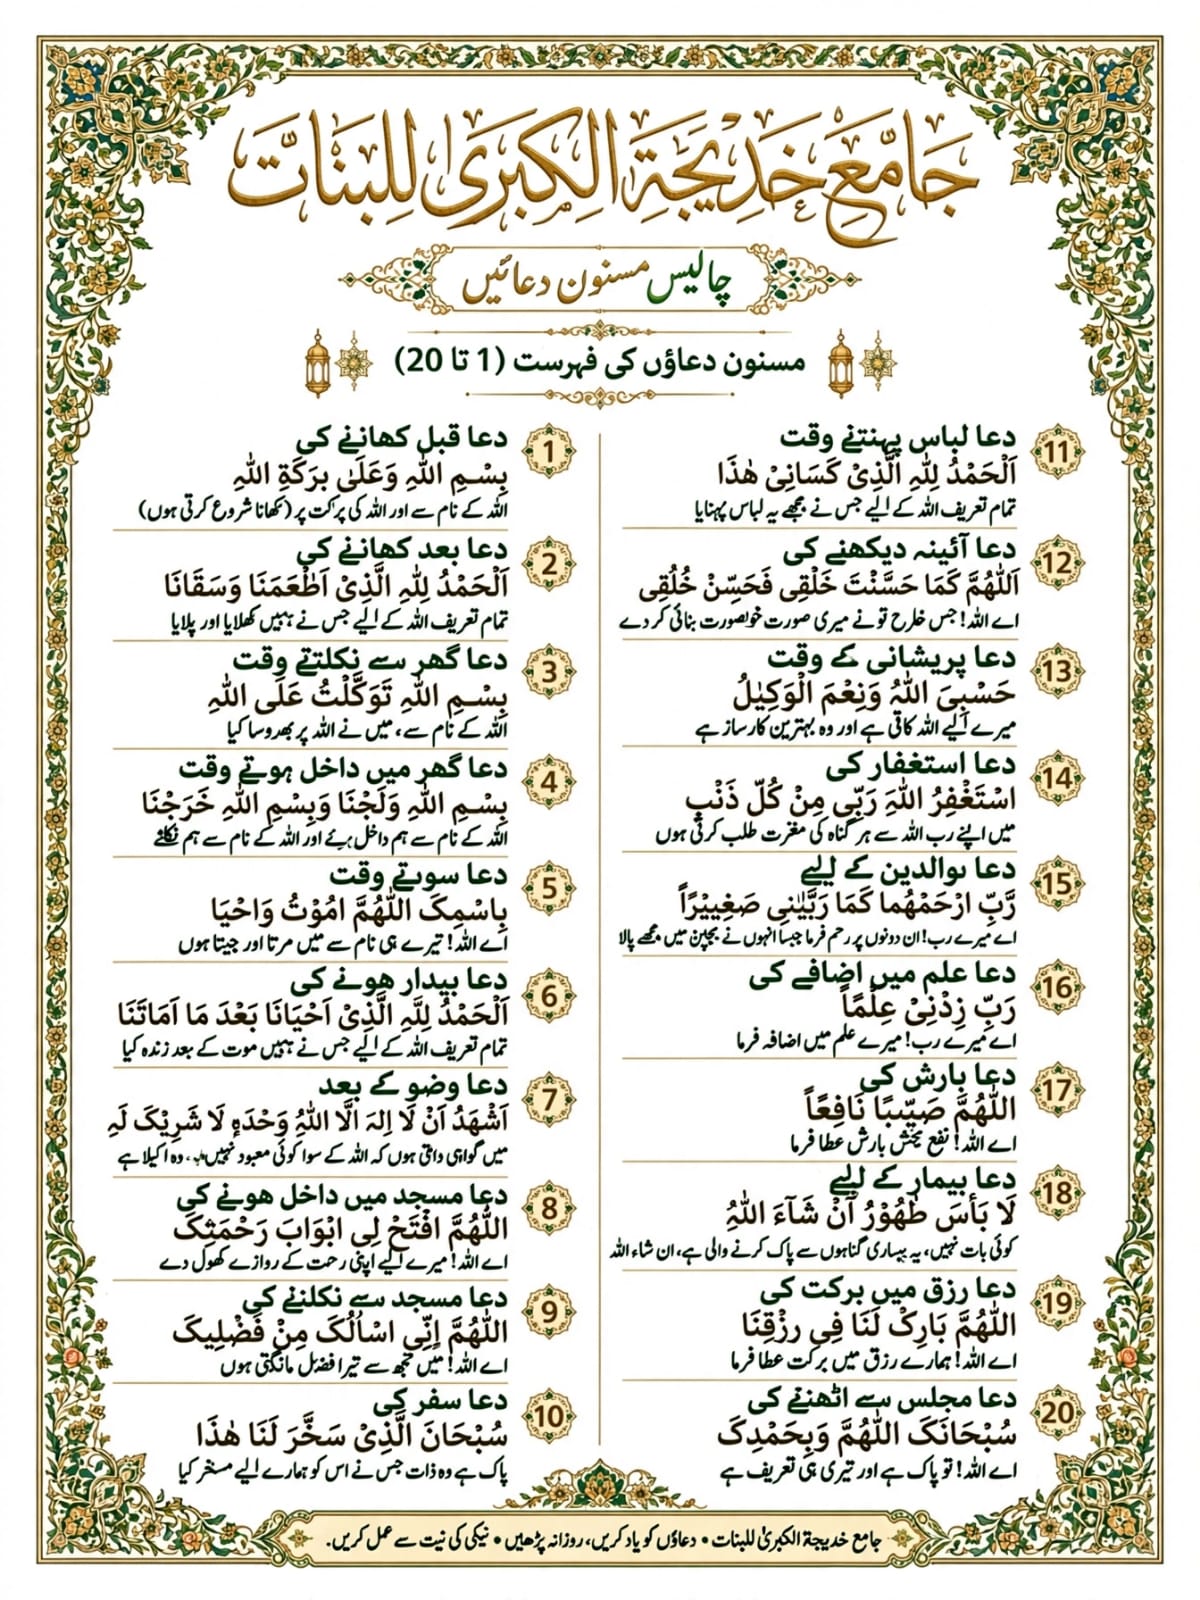 جَامَعَ خَدِيجَةِ الْكِبَرىٰ لِلبَنَاتّ
چالیس مسنون دعائیں
مسنون دعاؤں کی فہرست (1 تا 20)
1
دعا قبل کھانے کی
بِسْمِ اللّٰهِ وَعَلَىٰ بَرَكَةِ اللّٰهِ
اللہ کے نام سے اور اللہ کی برکت پر (کھانا شروع کرتی ہوں)
2
دعا بعد کھانے کی
اَلْحَمْدُ لِلّٰهِ الَّذِیْ اَطْعَمَنَا وَسَقَانَا
تمام تعریف اللہ کے لیے جس نے ہمیں کھلایا اور پلایا
3
دعا گھر سے نکلتے وقت
بِسْمِ اللّٰهِ تَوَكَّلْتُ عَلَى اللّٰهِ
اللہ کے نام سے، میں نے اللہ پر بھروسا کیا
4
دعا گھر میں داخل ہوتے وقت
بِسْمِ اللّٰهِ وَلَجْنَا وَبِسْمِ اللّٰهِ خَرَجْنَا
اللہ کے نام سے ہم داخل ہوئے اور اللہ کے نام سے ہم نکلے
5
دعا سوتے وقت
بِاسْمِکَ اللّٰهُمَّ امُوْتُ وَاحْیَا
اے اللہ! تیرے ہی نام سے میں مرتا اور جیتا ہوں
6
دعا بیدار ھونے کی
اَلْحَمْدُ لِلّٰهِ الَّذِیْ اَحْیَانَا بَعْدَ مَا اَمَاتَنَا
تمام تعریف اللہ کے لیے جس نے ہمیں موت کے بعد زندہ کیا
7
دعا وضو کے بعد
اَشْهَدُ اَنْ لَا اِلٰهَ الَّا اللّٰهُ وَحْدَهٖ لَا شَرِیْکَ لَهٖ
میں گواہی داتی ہوں کہ اللہ کے سوا کوئی معبود نہیں، وہ اکیلا ہے
8
دعا مسجد میں داخل ھونے کی
اللّٰهُمَّ افْتَحْ لِی ابْوَابَ رَحْمَتِکَ
اے اللہ! میرے لیے اپنی رحمت کے روازے کھول دے
9
دعا مسجد سے نکلنے کی
اللّٰهُمَّ اِنِّی اسْاَلُکَ مِنْ فَضْلِیکَ
اے اللہ! میں تجھ سے تیرا فضل مانگتی ہوں
10
دعا سفر کی
سُبْحَانَ الَّذِیْ سَخَّرَ لَنَا هٰذَا
پاک ہے وہ ذات جس نے اس کو ہمارے لیے مسخر کیا
11
دعا لباس پہنتے وقت
اَلْحَمْدُ لِلّٰهِ الَّذِیْ كَسَانِیْ هٰذَا
تمام تعریف اللہ کے لیے جس نے مجھے یہ لباس پہنایا
12
دعا آئینہ دیکھنے کی
اَللّٰهُمَّ كَمَا حَسَّنْتَ خَلْقِی فَحَسِّنْ خُلُقِی
اے اللہ! جس طرح تو نے میری صورت خوبصورت بنائی کر دے
13
دعا پریشانی کے وقت
حَسْبِیَ اللّٰهُ وَنِعْمَ الْوَکِیْلُ
میرے لیے اللہ کافی ہے اور وہ بہترین کارساز ہے
14
دعا استغفار کی
اسْتَغْفِرُ اللّٰهَ رَبِّی مِنْ كُلِّ ذَنْبٍ
میں اپنے رب اللہ سے ہر گناہ کی مغرت طلب کرتی ہوں
15
دعا ںوالدین کے لیے
رَّبِّ ارْحَمْهُما كَمَا رَبَّیٰنِی صَغِیِیْرًاً
اے میرے رب! ان دونوں پر رحم فرما جیسا انہوں نے بچپن میں مجھے پالا
16
دعا علم میں اضافے کی
رَبِّ زِدْنِیْ عِلْمًاً
اے میرے رب! میرے علم میں اضافہ فرما
17
دعا بارش کی
اللّٰهُمَّ صَیِّبًا نَافِعًاً
اے اللہ! نفع بخش بارش عطا فرما
18
دعا بیمار کے لیے
لَا بَأسَ طَهُوْرُ اَنْ شَآءَ اللّٰهُ
کوئی بات نہیں، یہ بیماری گناہوں سے پاک کرنے والی ہے، ان شاء اللہ
19
دعا رزق میں برکت کی
اللّٰهُمَّ بَارِکْ لَنَا فِی رِزْقِنَا
اے اللہ! ہمارے رزق میں برکت عطا فرما
20
دعا مجلس سے اٹھنے کی
سُبْحَانَکَ اللّٰهُمَّ وَبِحَمْدِکَ
اے اللہ! تو پاک ہے اور تیری ہی تعریف ہے
جامع خدیجة الکبریٰ للبنات • دعاؤں کو یاد کریں، روزانہ پڑھیں • نیکی کی نیت سے عمل کریں.